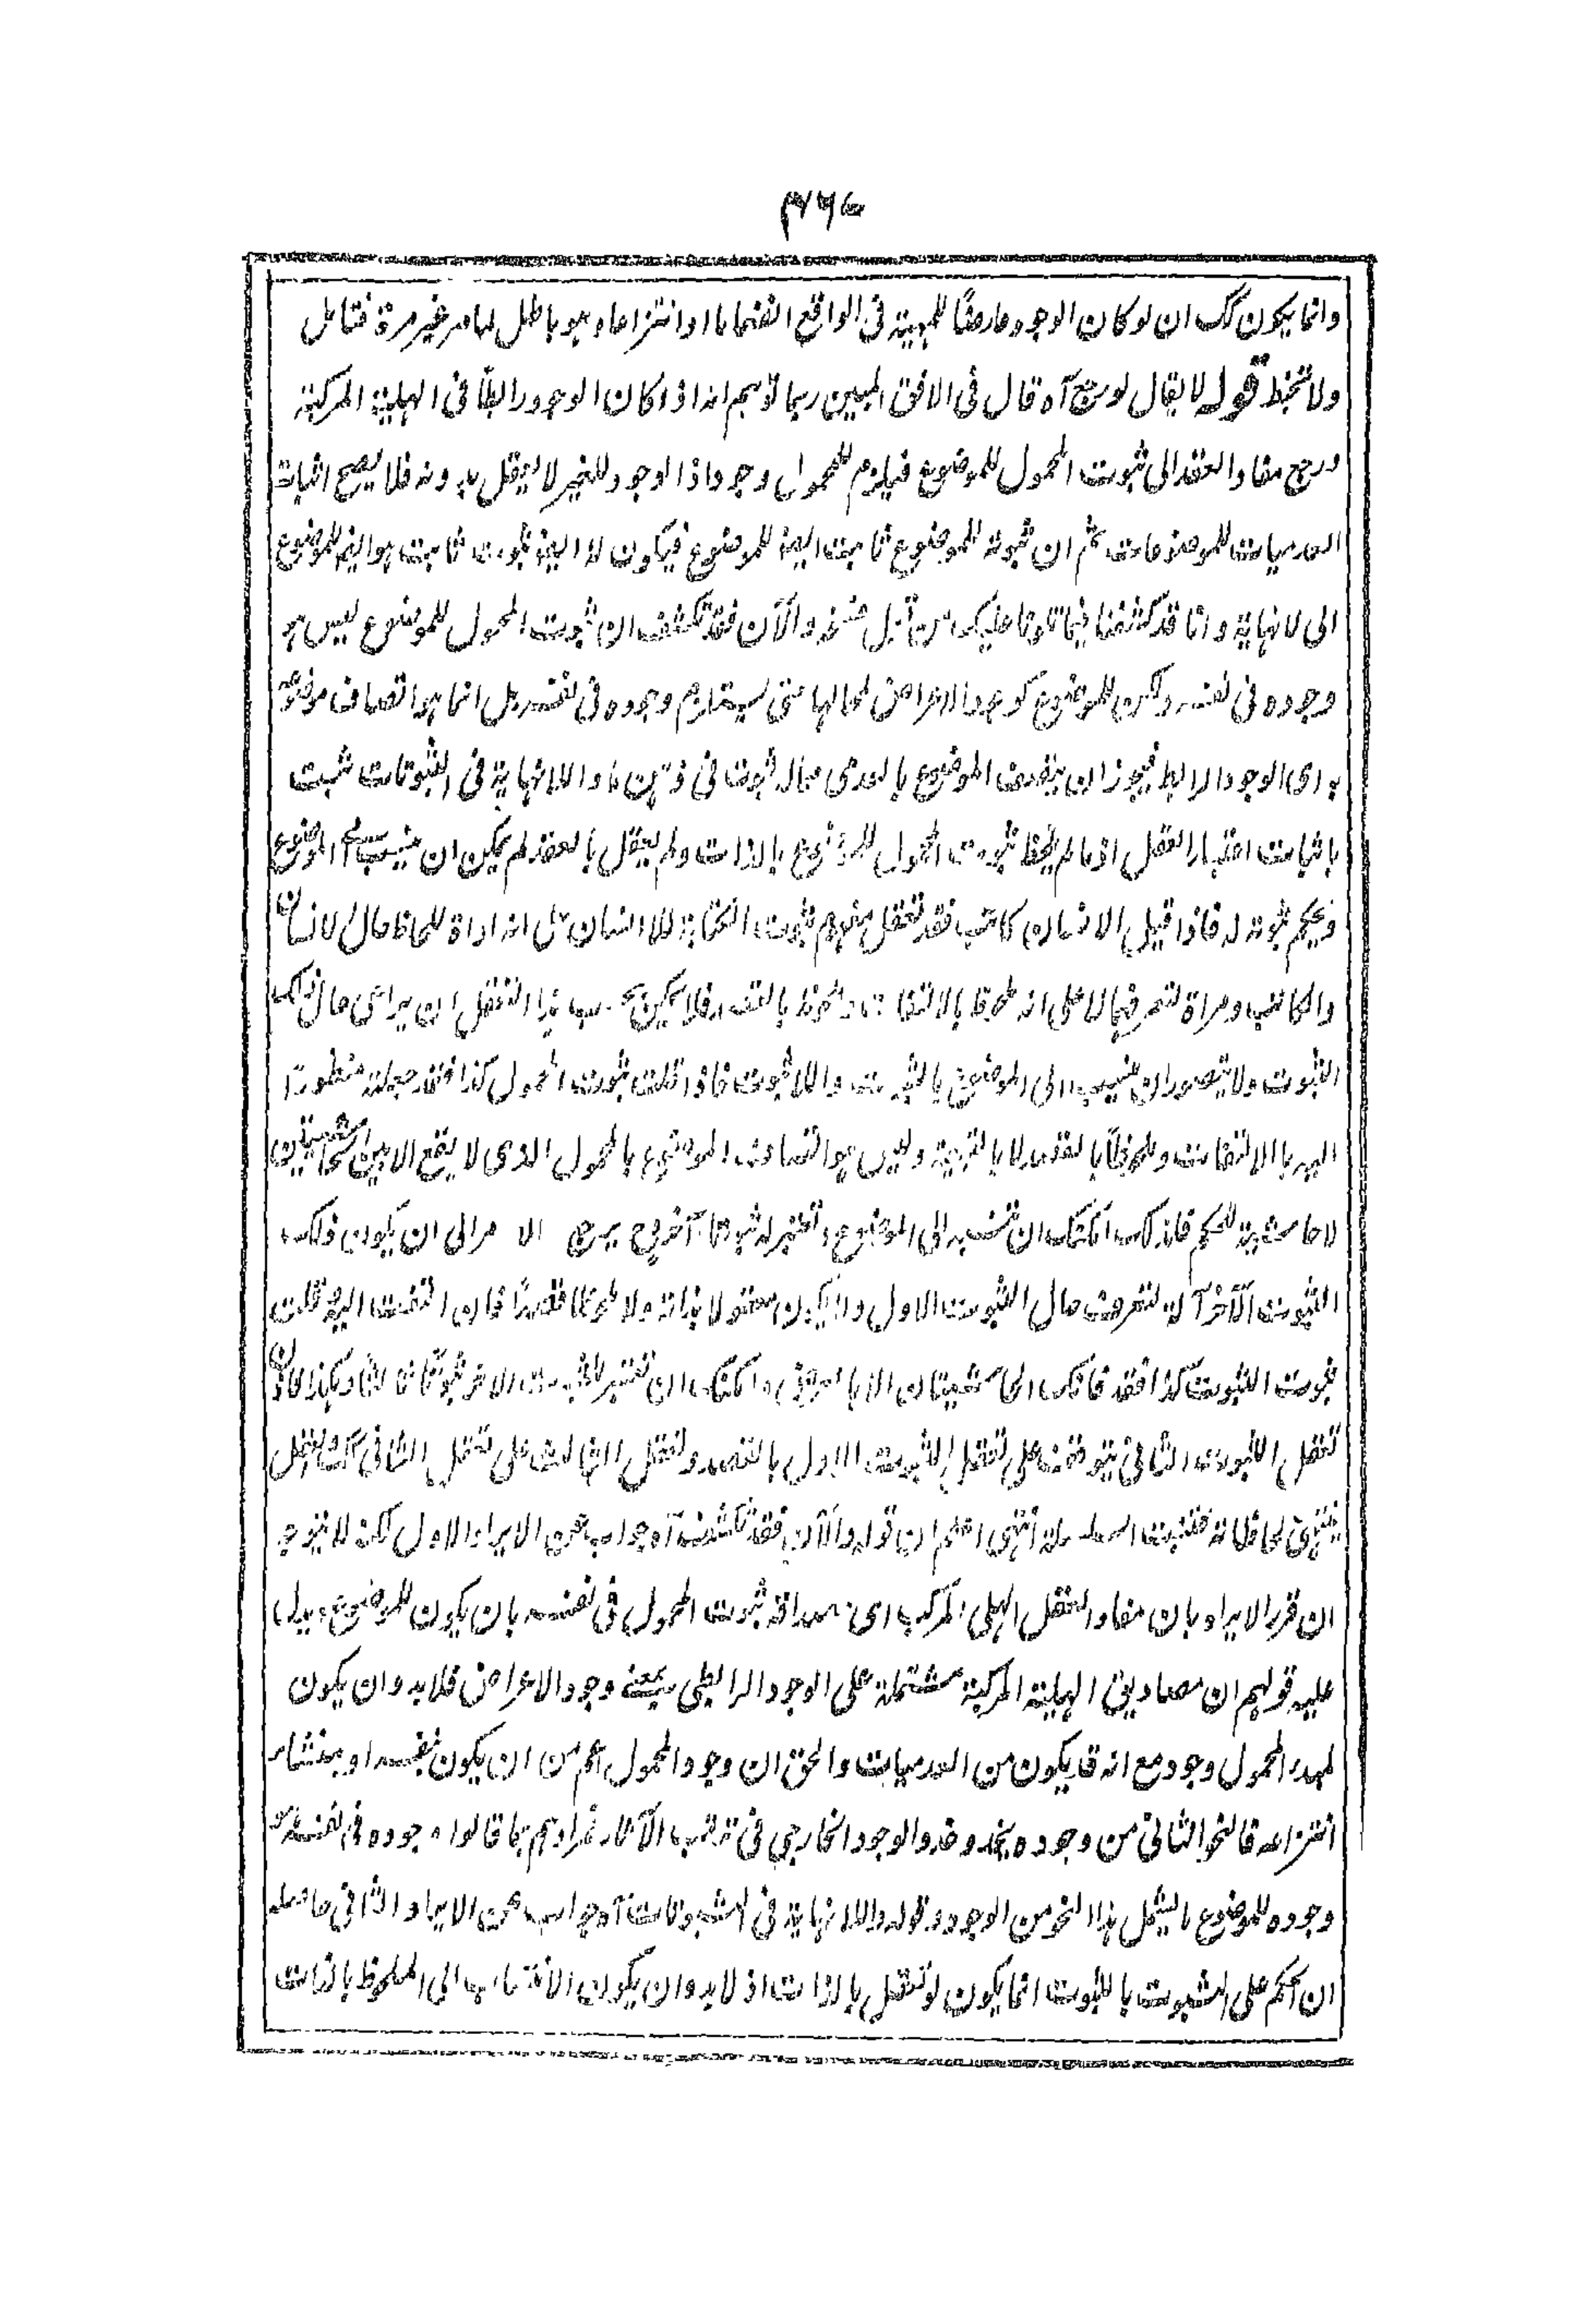 ٣٦٧
وانما يكون كك ان لو كان الوجود عارضًا للمهية فى الواقع انضماما او انتزاعا وهو باطل لما مر غير مرة فتامل
ولا تخبط قوله لا يقال لو رجع آه قال فى الافق المبين ربما توهم انه اذا كان الوجود رابطًا فى الهلية المركبة
ورجع مفاد العقد الى ثبوت المحمول للموضوع فيلزم للمحمول وجود اذ الوجود للغير لا يعقل بدونه فلا يصح اثبات
العدميات للموضوعات ثم ان ثبوته للموضوع ثابت ايضا للموضوع فيكون له ايضا ثبوت ثابت هو ايضا للموضوع
الى لا نهاية وانا قد كشفنا فيما تلونا عليك من قبل والآن فقد تكشف ان ثبوت المحمول للموضوع ليس هو
وجوده فى نفسه ولكن للموضوع كوجود الاعراض لمحالها حتى يستلزم وجوده فى نفسه بل انما هو اتصاف موضوعه
به اى الوجود الرابط فيجوز ان يتصف الموضوع بالعدمى بحال ثبوت فى ذهن ما واللانهاية فى الثبوتات ثبت
باثبات اعتبار العقل اذ ما لم يلحظ ثبوت المحمول للموضوع بالذات ولم يعقل بالعقد لم يمكن ان ينسب الى الموضوع
فيحكم بثبوته له فاذا قيل الانسان كاتب فقد تعقل منهم ثبوت الكتابة للانسان على انه اداة للحاظ حال الانسان
والكاتب ومراة لتعرفهما لا على انه ملحوظ بالالتفات بالقصد فلا يمكن بحسب هذا التعقل ان يراعى حال ذلك
الثبوت ولا يتصور ان ينسب الى الموضوع بالثبوت واللاثبوت فاذا قلت ثبوت المحمول كذا فقد جعلته منظورًا
اليه بالالتفات وملحوظًا بالقصد لا بالتبعية وليس هو اتصاف الموضوع بالمحمول الذى لا يقع الا بين الحاشيتين
لا حاشية للحكم فاذ ذاك امكنك ان تنسبه الى الموضوع وتعتبر له ثبوتا آخر وح يرجع الامر الى ان يكون ذلك
الثبوت الآخر آلة لتعرف حال الثبوت الاول ولا يكون معقولا بذاته ولا ملحوظا قصدًا فان التفت اليه وقلت
ثبوت الثبوت كذا فقد الى الحاشيتان وامكنك ان تعتبر للثبوت الاخر ثبوتًا ثالثًا وهكذا فاذن
تعقل الثبوت الثانى يتوقف على تعقل الثبوت الاول بالقصد وتعقل الثالث على تعقل الثانى كك والعقل
ينتهى لا محالة فتنبت السلسلة انتهى اعلم ان قوله والآن فقد تكشف آه جواب عن الايراد الاول لكنه لا يتوجه
ان قرر الايراد بان مفاد العقل الهلى المركب اى مصداقه ثبوت المحمول فى نفسه بان يكون للموضوع ويدل
عليه قولهم ان مصاديق الهلية المركبة مشتملة على الوجود الرابطى بمعنى وجود الاعراض فلا بد وان يكون
لهذا المحمول وجود مع انه قد يكون من العدميات والحق ان وجود المحمول اعم من ان يكون بنفسه او بمنشاء
انتزاعه فالنحو الثانى من وجوده يحذو حذو الوجود الخارجى فى ترتب الآثار فمرادهم بما قالوا وجوده فى نفسه هو
وجوده للموضوع ما يشمل هذا النحو من الوجود وقوله واللانهاية فى الثبوتات آه جواب عن الايراد الثانى حاصله
ان الحكم على الثبوت بالثبوت انما يكون لو تعقل بالذات اذ لا بد وان يكون الانتساب الى الملحوظ بالذات